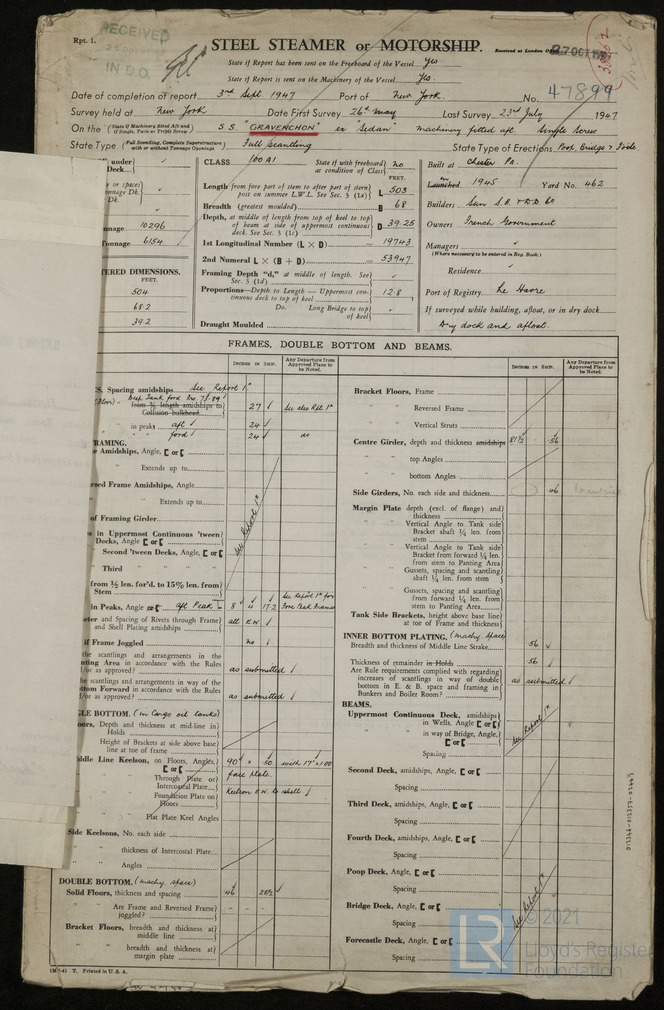 Rpt. 1.
RECEIVED
IN D.O.
STEEL STEAMER or MOTORSHIP.
Received at London
27 OCT
State if Report has been sent on the Freeboard of the Vessel Yes
State if Report is sent on the Machinery of the Vessel Yes.
Date of completion of report 3rd Sept 1947 Port of New York. No. 47899
Survey held at New York Date First Survey 26th May Last Survey 23rd July 1947
On the (State if Machinery fitted Aft and if Single, Twin or Triple Screw) S S "GRAVENCHON" ex "Sedan" machinery fitted aft Single Screw
State Type (Full Scantling, Complete Superstructure with or without Tonnage Openings) Full scantling State Type of Erections Poop, Bridge & F'cle
under
Deck
10296
6154
TERED DIMENSIONS.
FEET.
504
68.2
39.2
CLASS 100 A1 State if with freeboard as condition of Class no
FEET.
Length from fore part of stem to after part of stern post on summer L.W.L. See Sec. 3 (1a) L 503
Breadth (greatest moulded) B 68
Depth, at middle of length from top of keel to top of beam at side of uppermost continuous deck. See Sec. 3 (1c) D 39.25
1st Longitudinal Number (L × D) = 19743
2nd Numeral L × (B + D) = 53947
Framing Depth "d," at middle of length. See Sec. 3 (1d)
Proportions—Depth to Length—Uppermost continuous deck to top of keel 12.8
Do. Long Bridge to top of keel
Draught Moulded
Built at Chester Pa.
Launched 1945 Yard No. 462
Builders Sun S.B. & D.D. Co
Owners French Government
Managers
(Where necessary to be entered in Reg. Book.)
Residence
Port of Registry Le Havre
If surveyed while building, afloat, or in dry dock
Dry dock and afloat.
FRAMES, DOUBLE BOTTOM AND BEAMS.
INCHES IN SHIP. Any Departure from Approved Plans to be Noted.
S, Spacing amidships See Report 1*
from ⅗ length amidships to Collision bulkhead 27 See also Rpt 1*
in peaks aft 24
ford 24 as
FRAMING.
e Amidships, Angle, [ or [
Extends up to
rsed Frame Amidships, Angle
Extends up to
of Framing Girder
See Report 1*
s in Uppermost Continuous 'tween Decks, Angle [ or [
Second 'tween Decks, Angle, [ or [
Third
from ½ len. for'd. to 15% len. from Stem
in Peaks, Angle or [ aft Peak 8 4 17.2 See Report 1* for Fore Peak Frames
eter and Spacing of Rivets through Frame and Shell Plating amidships all E.W.
if Frame Joggled no
he scantlings and arrangements in the nting Area in accordance with the Rules /or as approved? as submitted
he scantlings and arrangements in way of the ttom Forward in accordance with the Rules /or as approved? as submitted
GLE BOTTOM. (in Cargo oil tanks)
oors, Depth and thickness at mid-line in Holds
Height of Brackets at side above base line at toe of frame
iddle Line Keelson, on Floors, Angles, [ or [ 90 × .50 with 17" × 1.00 face plate.
Through Plate or Intercostal Plate Keelson E.W. to shell
Foundation Plate on Floors
Flat Plate Keel Angles
Side Keelsons, No. each side
thickness of Intercostal Plate
Angles
DOUBLE BOTTOM. (machy space)
Solid Floors, thickness and spacing
Are Frame and Reversed Frame joggled?
Bracket Floors, breadth and thickness at middle line
breadth and thickness at margin plate
T. Printed in U.S.A.
INCHES IN SHIP. Any Departure from Approved Plans to be Noted.
Bracket Floors, Frame
Reversed Frame
Vertical Struts
Centre Girder, depth and thickness amidships 81½ .56
top Angles
bottom Angles
Side Girders, No. each side and thickness .46
Margin Plate depth (excl. of flange) and thickness
Vertical Angle to Tank side Bracket abaft ¼ len. from stem
Vertical Angle to Tank side Bracket from forward ¼ len. from stem to Panting Area
Gussets, spacing and scantling abaft ¼ len. from stem
Gussets, spacing and scantling from forward ¼ len. from stem to Panting Area
Tank Side Brackets, height above base line at toe of Frame and thickness
INNER BOTTOM PLATING. (machy space)
Breadth and thickness of Middle Line Strake .56
Thickness of remainder in Holds .56
Are Rule requirements complied with regarding increases of scantlings in way of double bottom in E. & B. space and framing in Bunkers and Boiler Room? as submitted
BEAMS.
Uppermost Continuous Deck, amidships in Wells, Angle [ or [
in way of Bridge, Angle, [ or [
Spacing
See Report 1*
Second Deck, amidships, Angle, [ or [
Spacing
Third Deck, amidships, Angle, [ or [
Spacing
Fourth Deck, amidships, Angle, [ or [
Spacing
Poop Deck, Angle, [ or [
Spacing
Bridge Deck, Angle, [ or [
Spacing
Forecastle Deck, Angle, [ or [
Spacing
See Report 1*
LR
© 2021
Lloyd's Register
Foundation